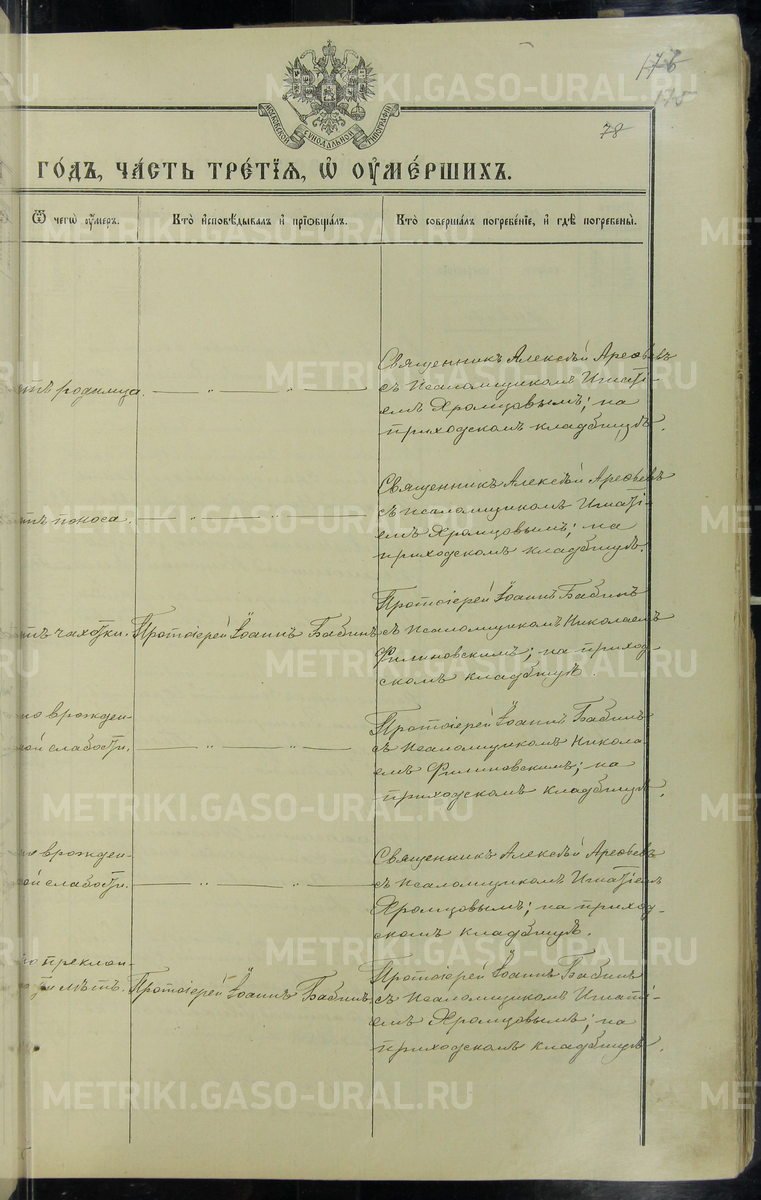 176
175
78
МОСКОВСКОЙ СѴНОДАЛЬНОЙ ТИПОГРАФІИ
ГО́ДЪ, ЧА́СТЬ ТРЕ́ТІѦ, Ѡ҆ ОУ҆МЕ́РШИХЪ.
Ѿ чегѡ̀ оу҆́меръ.
Кто̀ и҆сповѣ́дывалъ и҆ прїѻбща́лъ.
Кто̀ соверша́лъ погребе́нїе, и҆ гдѣ̀ погребены̀.
отъ родимца.
Священникъ Алексѣй Арефьевъ
съ псаломщикомъ Игнаті-
емъ Хромцовымъ; на
приходскомъ кладбищѣ.
отъ поноса.
Священникъ Алексѣй Арефьевъ
съ псаломщикомъ Игнаті-
емъ Хромцовымъ; на
приходскомъ кладбищѣ.
отъ чахотки.
Протоіерей Іоаннъ Бабинъ
Протоіерей Іоаннъ Бабинъ
съ псаломщикомъ Николаемъ
Филиновскимъ; на приход-
скомъ кладбищѣ.
по врожден-
ной слабости.
Протоіерей Іоаннъ Бабинъ
съ псаломщикомъ Никола-
емъ Филиновскимъ; на
приходскомъ кладбищѣ.
по врожден-
ной слабости.
Священникъ Алексѣй Арефьевъ
съ псаломщикомъ Игнатіемъ
Хромцовымъ; на приход-
скомъ кладбищѣ.
по преклон-
ности лѣтъ.
Протоіерей Іоаннъ Бабинъ
Протоіерей Іоаннъ Бабинъ
съ псаломщикомъ Игнаті-
емъ Хромцовымъ; на
приходскомъ кладбищѣ.
METRIKI.GASO-URAL.RU